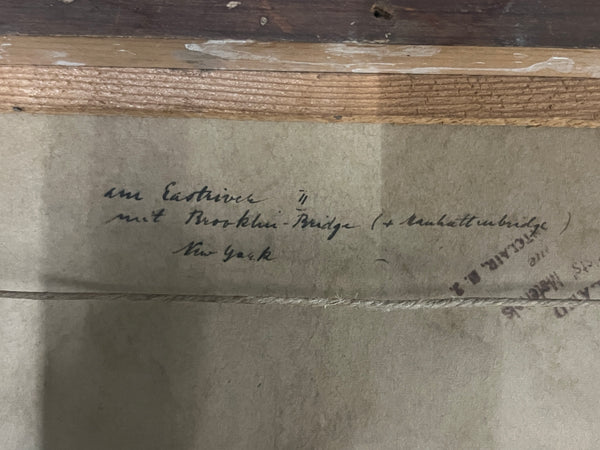 am Eastriver II
mit Brooklin-Bridge (+ Manhattenbridge)
New York
TCLAIR, N. J.